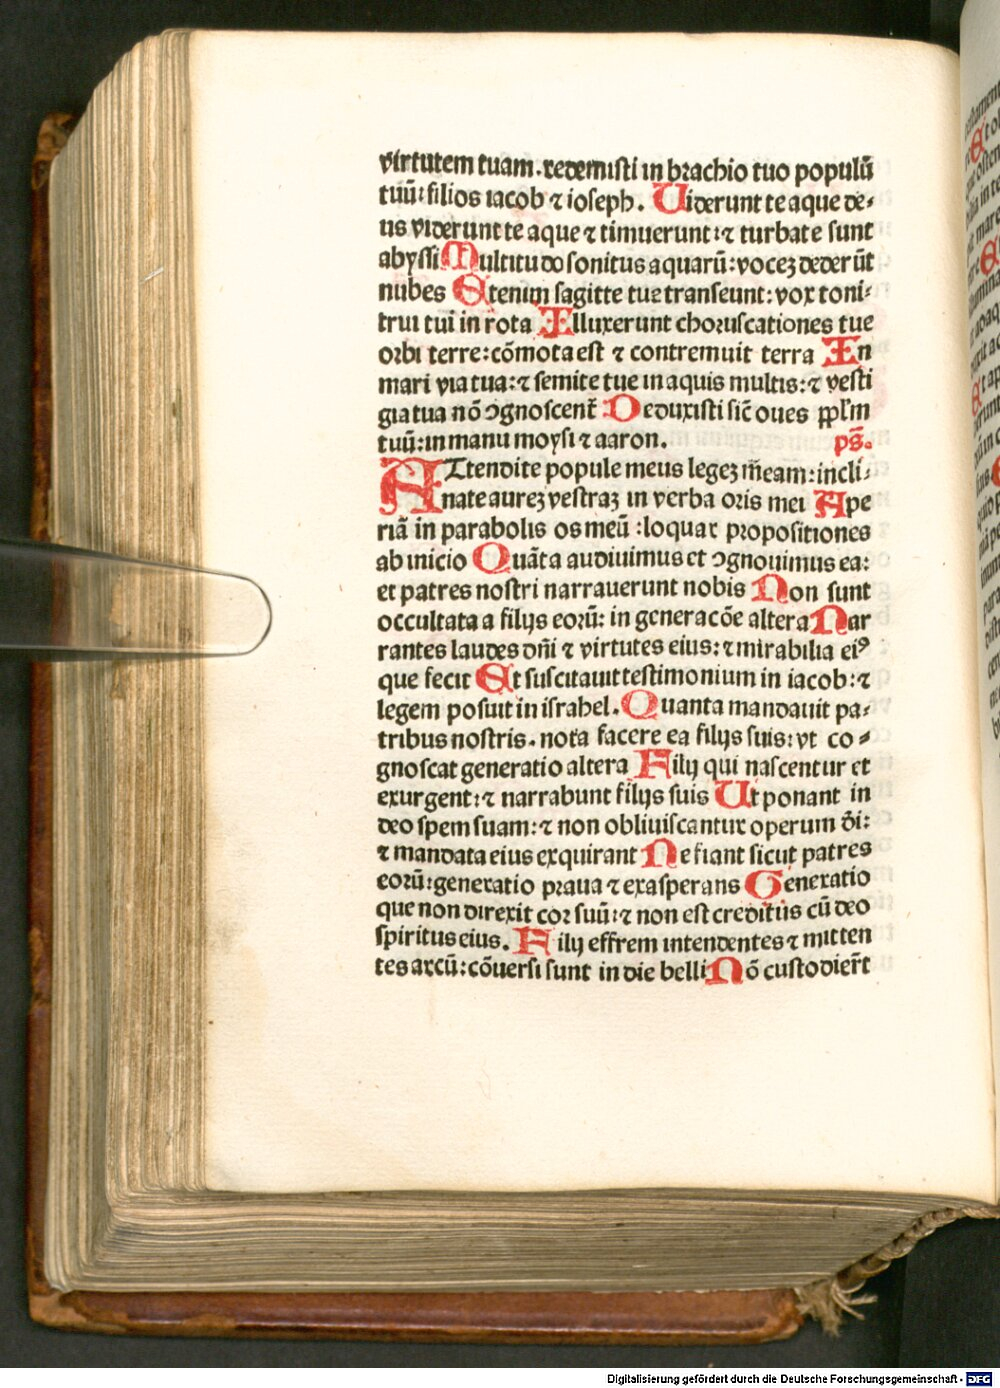 virtutem tuam. redemisti in brachio tuo populū
tuū: filios iacob ⁊ ioseph. Uiderunt te aque de⸗
us viderunt te aque ⁊ timuerunt: ⁊ turbate sunt
abyssi Multitudo sonitus aquarū: vocez dederūt
nubes Etenim sagitte tue transeunt: vox toni⸗
trui tui in rota Illuxerunt choruscationes tue
orbi terre: cōmota est ⁊ contremuit terra In
mari via tua: ⁊ semite tue in aquis multis: ⁊ vesti
gia tua nō ɔgnoscent̄ Deduxisti sic̄ oues ꝓpl̄m
tuū: in manu moysi ⁊ aaron. ps̄.
ATtendite popule meus legez m̄eam: incli⸗
nate aurez vestraz in verba oris mei Ape
riā in parabolis os meū: loquar propositiones
ab inicio Quāta audiuimus et ɔgnouimus ea:
et patres nostri narrauerunt nobis Non sunt
occultata a filijs eorū: in generacōe altera Nar
rantes laudes dn̄i ⁊ virtutes eius: ⁊ mirabilia eiꝰ
que fecit Et suscitauit testimonium in iacob: ⁊
legem posuit in israhel. Quanta mandauit pa⸗
tribus nostris. nota facere ea filijs suis: vt co⸗
gnoscat generatio altera Filij qui nascentur et
exurgent: ⁊ narrabunt filijs suis Ut ponant in
deo spem suam: ⁊ non obliuiscantur operum d̄i:
⁊ mandata eius exquirant Ne fiant sicut patres
eorū: generatio praua ⁊ exasperans Generatio
que non direxit cor suū: ⁊ non est creditus cū deo
spiritus eius. Filij effrem intendentes ⁊ mitten
tes arcū: cōuersi sunt in die belli Nō custodier̄t
Digitalisierung gefördert durch die Deutsche Forschungsgemeinschaft - DFG